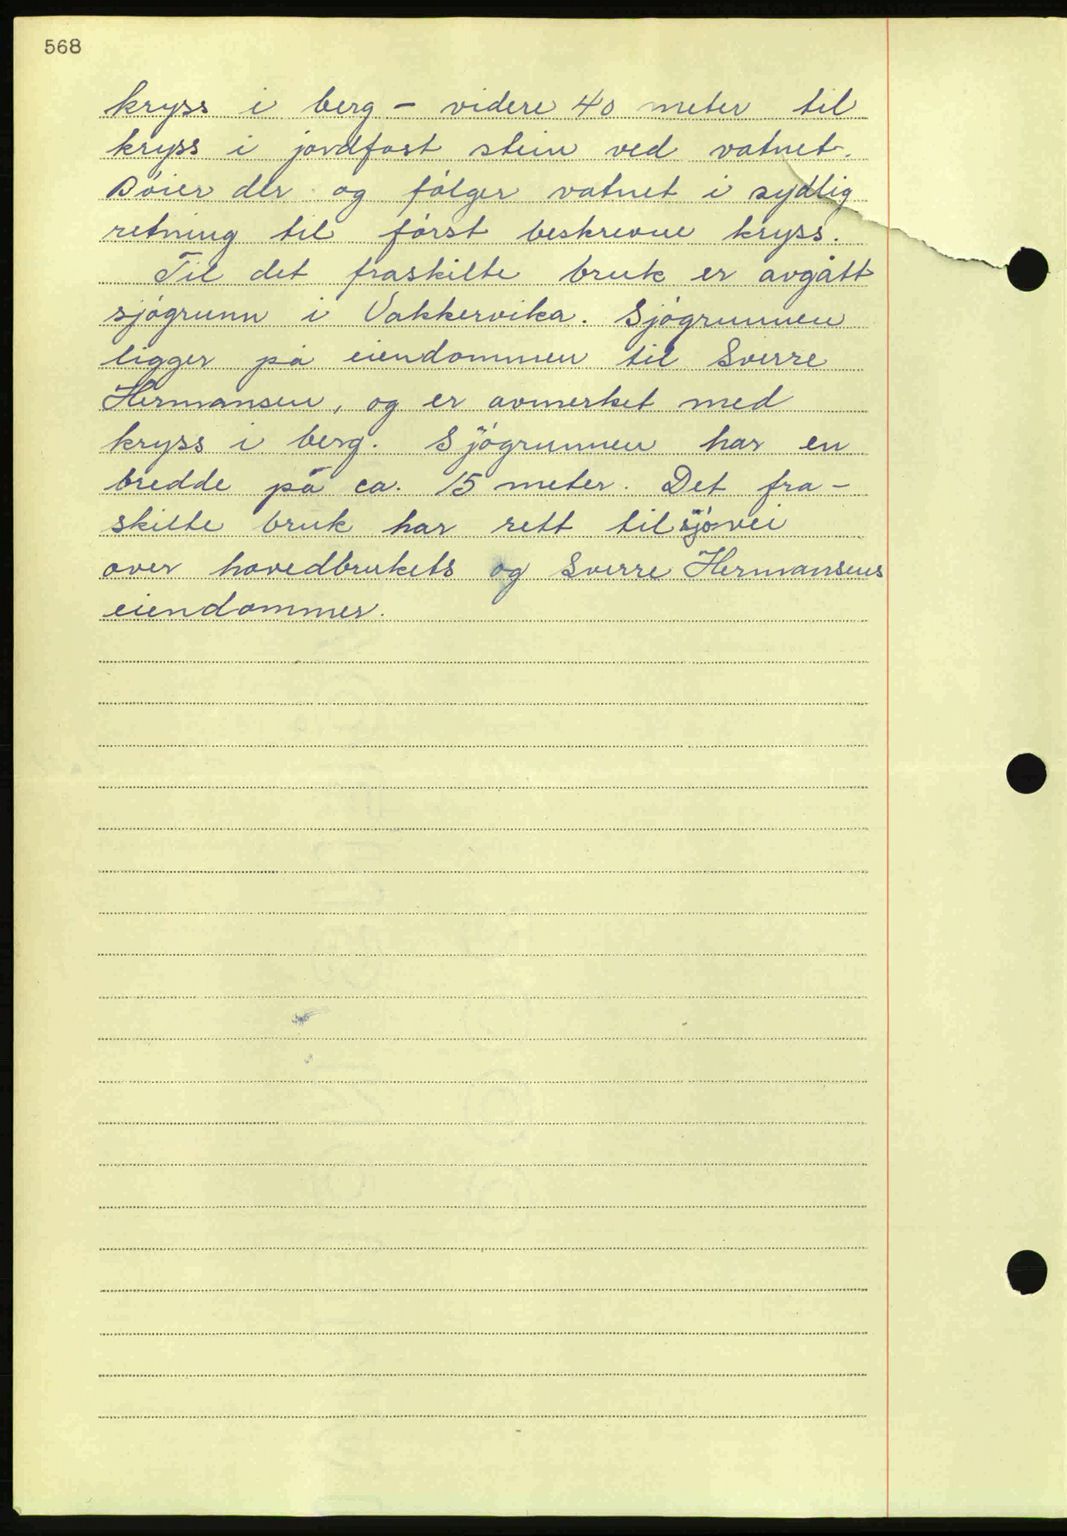 568
kryss i berg - videre 40 meter til
kryss i jordfast stein ved vatnet.
Bøier der og følger vatnet i sydlig
retning til først beskrevne kryss.
Til det fraskilte bruk er avgått
sjøgrunn i Vakkervika. Sjøgrunnen
ligger på eiendommen til Sverre
Hermansen, og er avmerket med
kryss i berg. Sjøgrunnen har en
bredde på ca. 15 meter. Det fra-
skilte bruk har rett til sjøvei
over hovedbrukets og Sverre Hermansens
eiendommer.